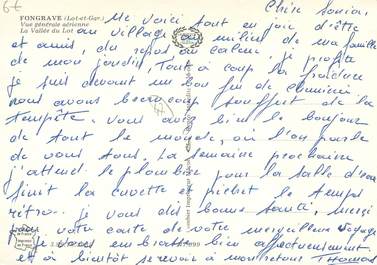 6€
FONGRAVE (Lot-et-Gar.)
Vue générale aérienne
La Vallée du Lot
Chère
Me voici tout en joie d'être
au village au milieu de ma famille
et amis, du repos au calme, je profite
de mon jardin, Tout à coup la froidure
je suis devant un bon feu de cheminée
nous avons beaucoup souffert de la
tempête. Vous avez bien le bonjour
de tout le monde, où l'on parle
de vous tous. La semaine prochaine
j'attend le plombier pour la salle d'eau
finit la cuvette et pichet le temps
rétro. je vous dis bonne santé, merci
pour votre carte de votre merveilleux voyage
vous embrasse bien affectueusement
et à bientôt se revoir à mon retour Thomas